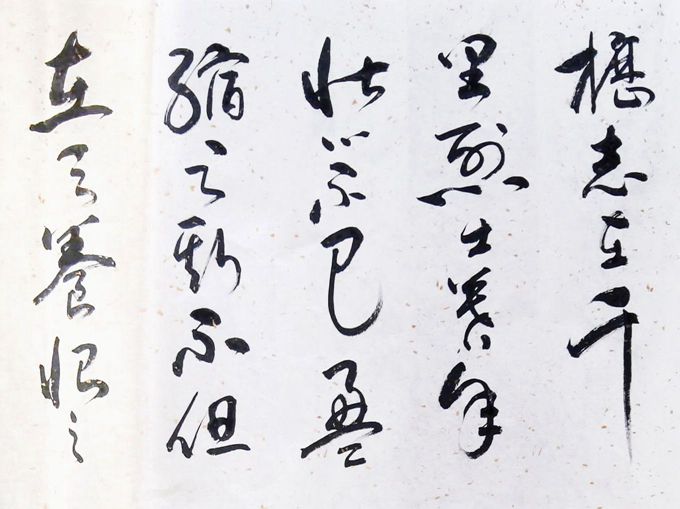 櫪志在千
里烈士暮年
壯心不已盈
縮之期不但
在天養怡之